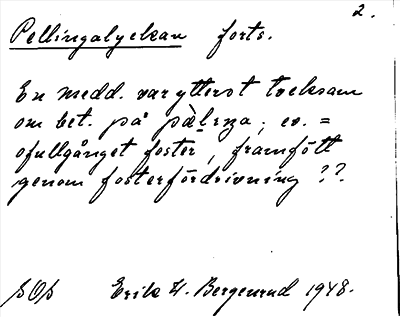 2.
Pellingalyckan forts.
En medd. var ytterst tveksam
om bet. på pàlṇa; ev. =
ofullgånget foster, framfött
genom fosterfördrivning ??.
SOÞ Erik H. Bergenrud 1948.